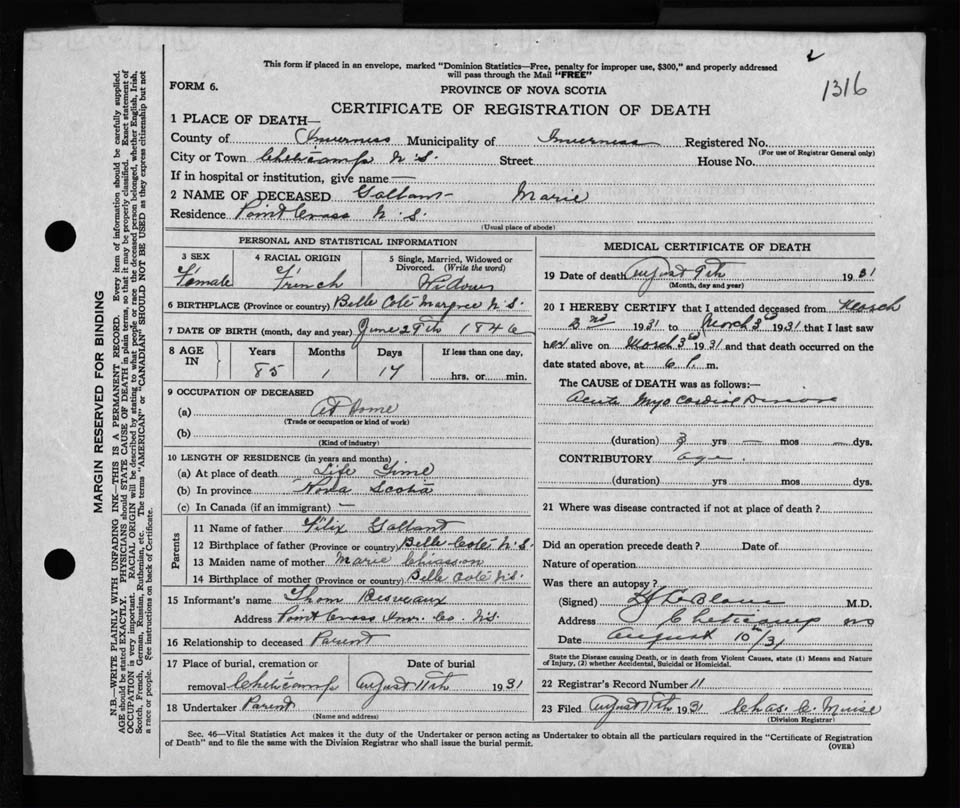 This form if placed in an envelope, marked "Dominion Statistics—Free, penalty for improper use, $300," and properly addressed
will pass through the Mail "FREE"
1316
FORM 6.
PROVINCE OF NOVA SCOTIA
CERTIFICATE OF REGISTRATION OF DEATH
1 PLACE OF DEATH—
County of Inverness Municipality of Inverness Registered No.
(For use of Registrar General only)
City or Town Cheticamp N.S. Street House No.
If in hospital or institution, give name —
2 NAME OF DECEASED Gallant Marie
Residence Point Cross N.S.
(Usual place of abode)
PERSONAL AND STATISTICAL INFORMATION
3 SEX 4 RACIAL ORIGIN 5 Single, Married, Widowed or Divorced. (Write the word)
Female French Widow
6 BIRTHPLACE (Province or country) Belle Coté Margree N.S.
7 DATE OF BIRTH (month, day and year) June 29th 1846
8 AGE IN Years Months Days If less than one day,
85 1 14 hrs. or min.
9 OCCUPATION OF DECEASED
(a) At Home
(Trade or occupation or kind of work)
(b)
(Kind of industry)
10 LENGTH OF RESIDENCE (in years and months)
(a) At place of death Life Time
(b) In province Nova Scotia
(c) In Canada (if an immigrant) —
Parents
11 Name of father Felix Gallant
12 Birthplace of father (Province or country) Belle Coté N.S.
13 Maiden name of mother Marie Chiasson
14 Birthplace of mother (Province or country) Belle Coté N.S.
15 Informant's name Thom Desveaux
Address Point Cross Inv. Co. N.S.
16 Relationship to deceased Parent
17 Place of burial, cremation or Date of burial
removal Cheticamp August 11th 1931
18 Undertaker Parent
(Name and address)
MEDICAL CERTIFICATE OF DEATH
19 Date of death August 9th 1931
(Month, day and year)
20 I HEREBY CERTIFY that I attended deceased from March
3rd 1931 to March 3rd 1931 that I last saw
her alive on March 3rd 1931 and that death occurred on the
date stated above, at 6 P. m.
The CAUSE OF DEATH was as follows:—
Acute Myocardial Disease
(duration) 3 yrs — mos — dys.
CONTRIBUTORY age.
(duration) yrs mos dys.
21 Where was disease contracted if not at place of death?
Did an operation precede death? Date of
Nature of operation
Was there an autopsy?
(Signed) LeBlanc M.D.
Address Cheticamp NS
Date August 10th/31
State the Disease causing Death, or in death from Violent Causes, state (1) Means and Nature
of Injury, (2) whether Accidental, Suicidal or Homicidal.
22 Registrar's Record Number 11
23 Filed August 11th 1931 Chas. C. Muise
(Division Registrar)
Sec. 46—Vital Statistics Act makes it the duty of the Undertaker or person acting as Undertaker to obtain all the particulars required in the "Certificate of Registration
of Death" and to file the same with the Division Registrar who shall issue the burial permit.
(OVER)
MARGIN RESERVED FOR BINDING
N.B.—WRITE PLAINLY WITH UNFADING INK—THIS IS A PERMANENT RECORD. Every item of information should be carefully supplied.
AGE should be stated EXACTLY. PHYSICIANS should STATE CAUSE OF DEATH in plain terms, so that it may be properly classified. Exact statement of
OCCUPATION is very important. RACIAL ORIGIN will be described by stating to what people or race the deceased person belonged, whether English, Irish,
Scotch, French, German, Russian, Ruthenian, etc. The terms "AMERICAN" or "CANADIAN" SHOULD NOT BE USED as they express citizenship but not
a race or people. See instructions on back of Certificate.